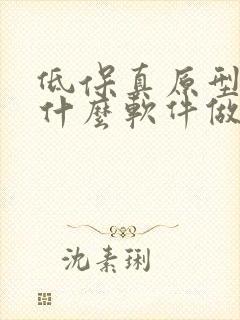 低保真原型
什麼軟件做
沈素琍